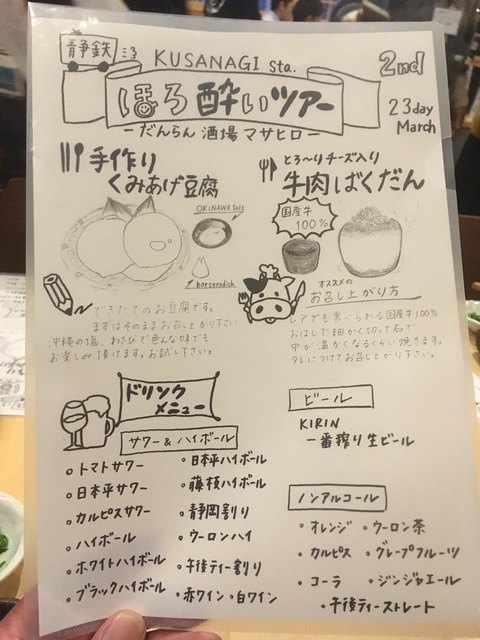 静鉄
KUSANAGI sta.
2nd
ほろ酔いツアー
23day
March
ーだんらん 酒場 マサヒロー
手作り
くみあげ豆腐
とろ〜りチーズ入り
牛肉ばくだん
OKINAWA Salt
horseradish
国産牛
100%
できたてのお豆腐です。
まずはそのままお召し上がり下さい
沖縄の塩、わさびで色んな味でも
お楽しみ頂けます。お試し下さい。
オススメの
お召し上がり方
レアでも食べられる国産牛100%
おはしで細かく切って石で
中が温かくなるくらい焼きます。
タレにつけてお召し上がり下さい。
ドリンク
メニュー
サワー & ハイボール
・トマトサワー
・日本平サワー
・カルピスサワー
・ハイボール
・ホワイトハイボール
・ブラックハイボール
・日本平ハイボール
・藤枝ハイボール
・静岡割り
・ウーロンハイ
・午後ティー割り
・赤ワイン ・白ワイン
ビール
KIRIN
一番搾り生ビール
ノンアルコール
・オレンジ ・ウーロン茶
・カルピス ・グレープフルーツ
・コーラ ・ジンジャエール
・午後ティーストレート